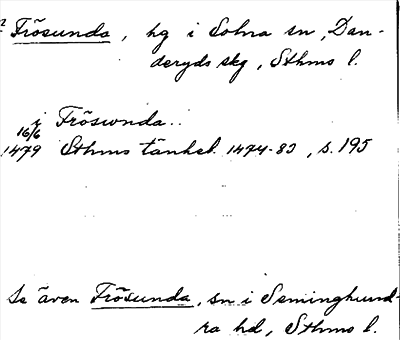 Frösunda, hg i Solna sn, Dan-
deryds skg, Sthms l.
i Fröswnda..
16/6
1479 Sthms tänkeb. 1474-83, s. 195
Se även Frösunda, sn i Seminghund-
ra hd, Sthms l.